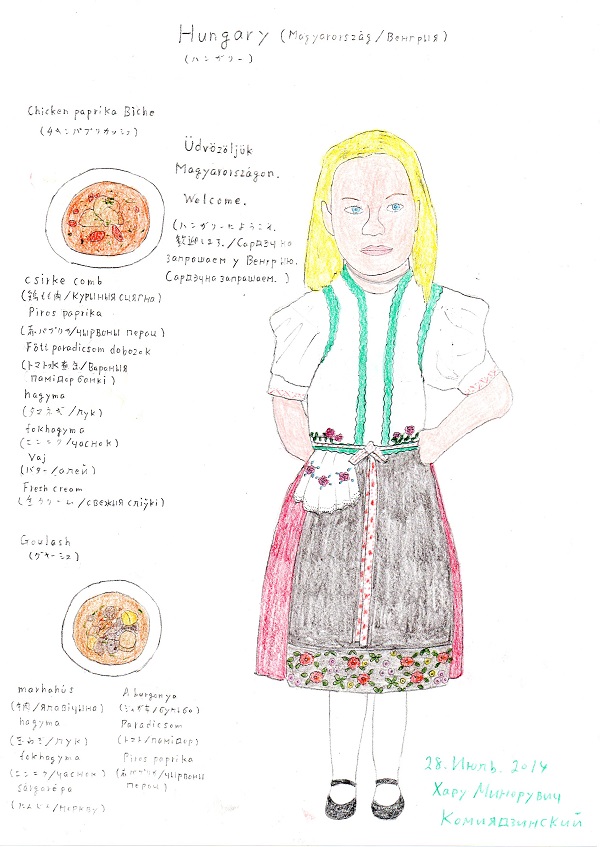 Hungary (Magyarország/Венгрыя)
(ハンガリー)
Chicken paprika Biche
Üdvözöljük
Magyarországon.
Welcome.
(ハンガリーにようこそ。
歓迎します。/Сардэчна
запрашаем у Венгрыю.
Сардэчна запрашаем. )
csirke comb
(鶏もも肉/курыныя сцягно)
Piros paprika
(赤パプリカ/чырвоны перац)
Főtt paradicsom dobozok
(トマト水煮缶/Вараныя
памідор бонкі)
hagyma
(タマネギ/лук)
fokhagyma
(ニンニク/часнок)
Vaj
(バター/алей)
Fresh cream
(生クリーム/свежыя сліўкі)
Goulash
(グヤーシュ)
marhahús
(牛肉/ялавічына)
hagyma
(玉ねぎ/лук)
fokhagyma
(ニンニク/часнок)
sárgarépa
(にんじん/моркву)
A burgonya
(じゃがいも/бульба)
Paradicsom
(トマト/памідор)
Piros paprika
(赤パプリカ/чырвоны
перац)
28. Июль. 2014
Хару Минорувич
Комиядзинский